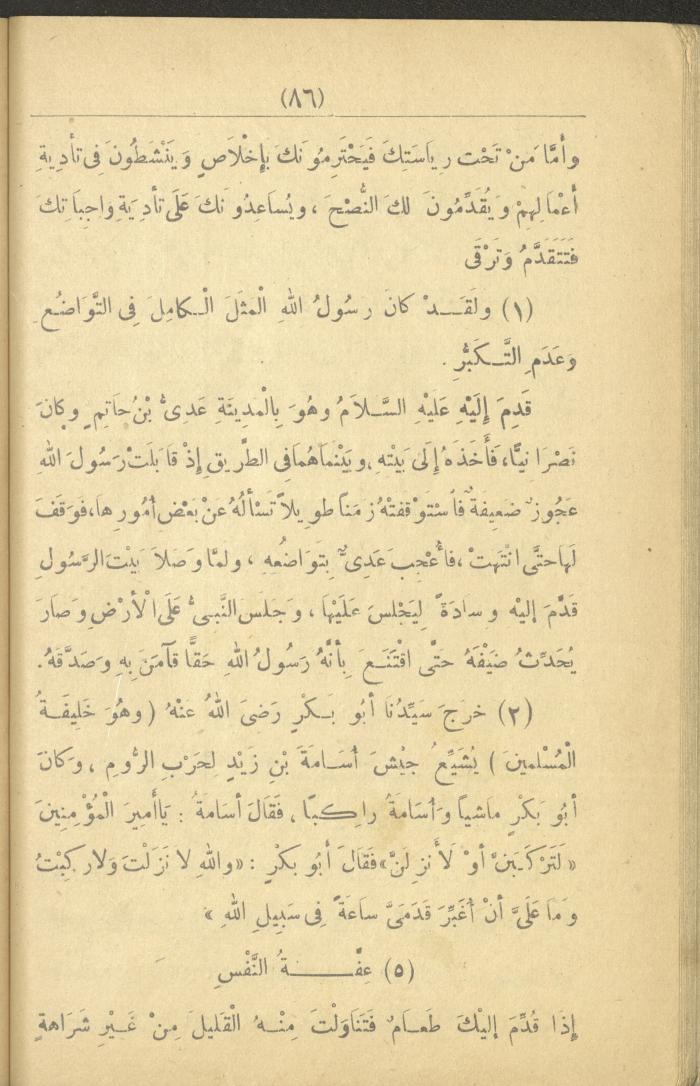 (٨٦)
وأَمَّا مَنْ تَحْت رِيَاسَتِكَ فَيَحْتَرِمُونَكَ بِإِخْلَاصٍ وَيَنْشَطُونَ فِى تأدِيةِ
أَعْمَالِهِمْ وَيُقَدِّمُونَ لكَ النُّصْحَ ، ويُساعِدُونَكَ عَلَى تأدِيَةِ واجِبَاتِكَ
فَتَتَقَدَّمُ وَتَرْقَى
(١) ولَقَدْ كانَ رسُولُ اللهِ الْمثَلَ الْكامِلَ فِى التَّوَاضُعِ
وعَدَمِ التَّكَبُّرِ .
قَدِمَ إِلَيْهِ عَلَيْهِ السَّلاَمُ وهُوَ بِالْمدِينَةِ عَدِىُّ بْنُ حَاتِمٍ وكانَ
نَصْرَانيًّا، فَأَخَذَهُ إِلَى بَيْتِهِ ، وبَيْنَمَا هُمَا فِى الطَّرِيقِ إِذْ قابَلَتْ رَسُولَ اللهِ
عَجُوزٌ ضَعِيفةٌ فاسْتَوْقفَتْهُ زمَناً طوِيلاً تَسْألُهُ عَنْ بَعْضِ أُمُورِها، فوَقَفَ
لَها حتَّى انْتَهَتْ ، فأُعْجِبَ عَدِىٌّ بِتَوَاضُعِهِ ، ولمَّا وَصَلاَ بيْتَ الرَّسُولِ
قدَّمَ إليْهِ وِسادَةً لِيَجْلِسَ عَلَيْهَا ، وَجلَسَ النَّبِىُّ عَلَى الْأَرْضِ وصَارَ
يُحَدِّثُ ضَيْفَهُ حَتَّى اقْتَنَعَ بِأَنَّهُ رَسُولُ اللهِ حَقًّا فآمَنَ بِهِ وصَدَّقَهُ.
(٢) خرجَ سَيِّدُنَا أَبُو بَكْرٍ رَضِىَ اللهُ عَنْهُ ( وهُوَ خَلِيفَةُ
الْمُسْلمِينَ ) يُشَيِّعُ جيْشَ أُسَامَةَ بْنِ زَيْدٍ لِحَرْبِ الرُّومِ ، وكانَ
أبُو بَكْرٍ ماشِياً وَأُسَامَةُ راكِبًا ، فَقَالَ أسَامَةُ : يَاأَمِيرَ الْمُؤْمِنِينَ
« لَتَرْكَبَنَّ أوْ لَأَنزِلَنَّ» فَقَالَ أبُو بكْرٍ : «واللهِ لا نَزَلْتَ وَلاَرَكِبْتُ
ومَا عَلَىَّ أنْ أُغَبِّرَ قَدَمَىَّ ساعَةً فِى سَبِيلِ اللهِ »
(٥) عِفَّةُ النَّفْسِ
إِذَا قُدِّمَ إليْكَ طَعَامٌ فَتَنَاوَلْتَ مِنْهُ الْقَلِيلَ مِنْ غَيْرِ شَرَاهةٍ